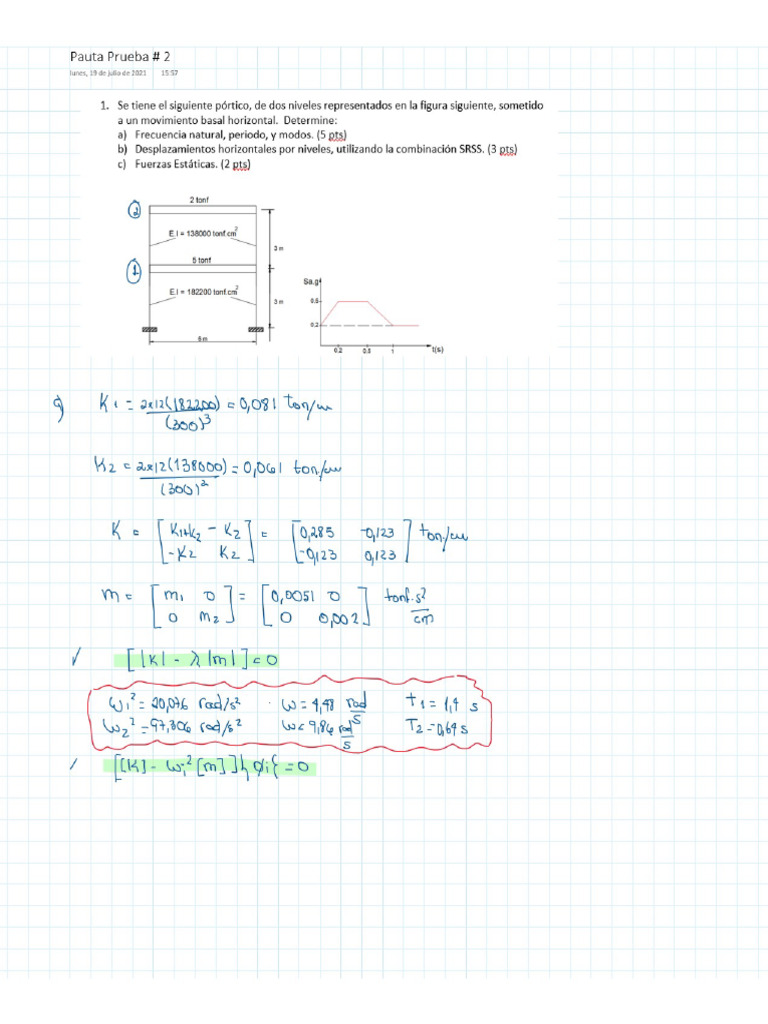 Pauta Prueba # 2
lunes, 19 de julio de 2021 15:57
1. Se tiene el siguiente pórtico, de dos niveles representados en la figura siguiente, sometido
a un movimiento basal horizontal. Determine:
a) Frecuencia natural, periodo, y modos. (5 pts)
b) Desplazamientos horizontales por niveles, utilizando la combinación SRSS. (3 pts)
c) Fuerzas Estáticas. (2 pts)
2 tonf
②
E.I = 138000 tonf.cm²
3 m
5 tonf
①
E.I = 182200 tonf.cm²
3 m
6 m
Sa.g
0.5
0.2
0.2 0.5 1 t(s)
a) K1 = 2x12(182200)/(300)³ = 0,081 ton/cm
K2 = 2x12(138000)/(300)² = 0,061 ton/cm
K = [K1+K2 -K2] = [0,285 -0,123] ton/cm
[-K2 K2] [-0,123 0,123]
m = [m1 0] = [0,0051 0] tonf.s²/cm
[0 m2] [0 0,002]
✓ [|K| - λ|m|] = 0
ω1² = 20,076 rad/s² ω = 4,48 rad/s t1 = 1,4 s
ω2² = 97,306 rad/s² ω = 9,86 rad/s T2 = 0,64 s
✓ [[K] - ωi²[m]]{φi} = 0